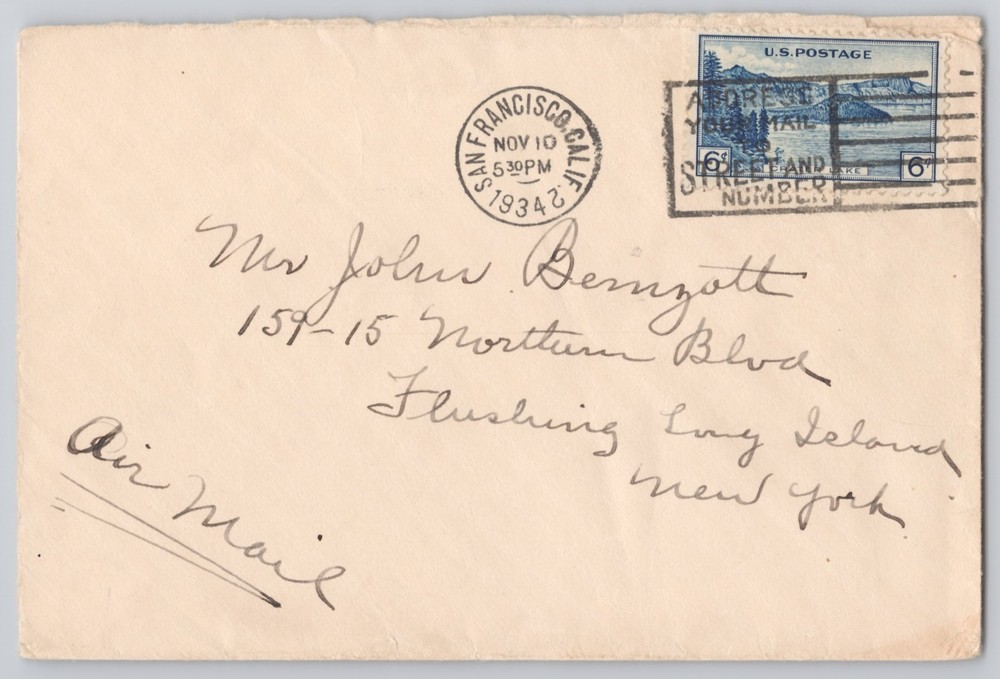 U.S. POSTAGE
6¢ LAKE 6¢
SAN FRANCISCO, CALIF. 2
NOV 10
5 30 PM
1934
ADDRESS
YOUR MAIL
TO
STREET AND
NUMBER
Mr John Bernzott
159-15 Northern Blvd
Flushing Long Island
New York
Air Mail